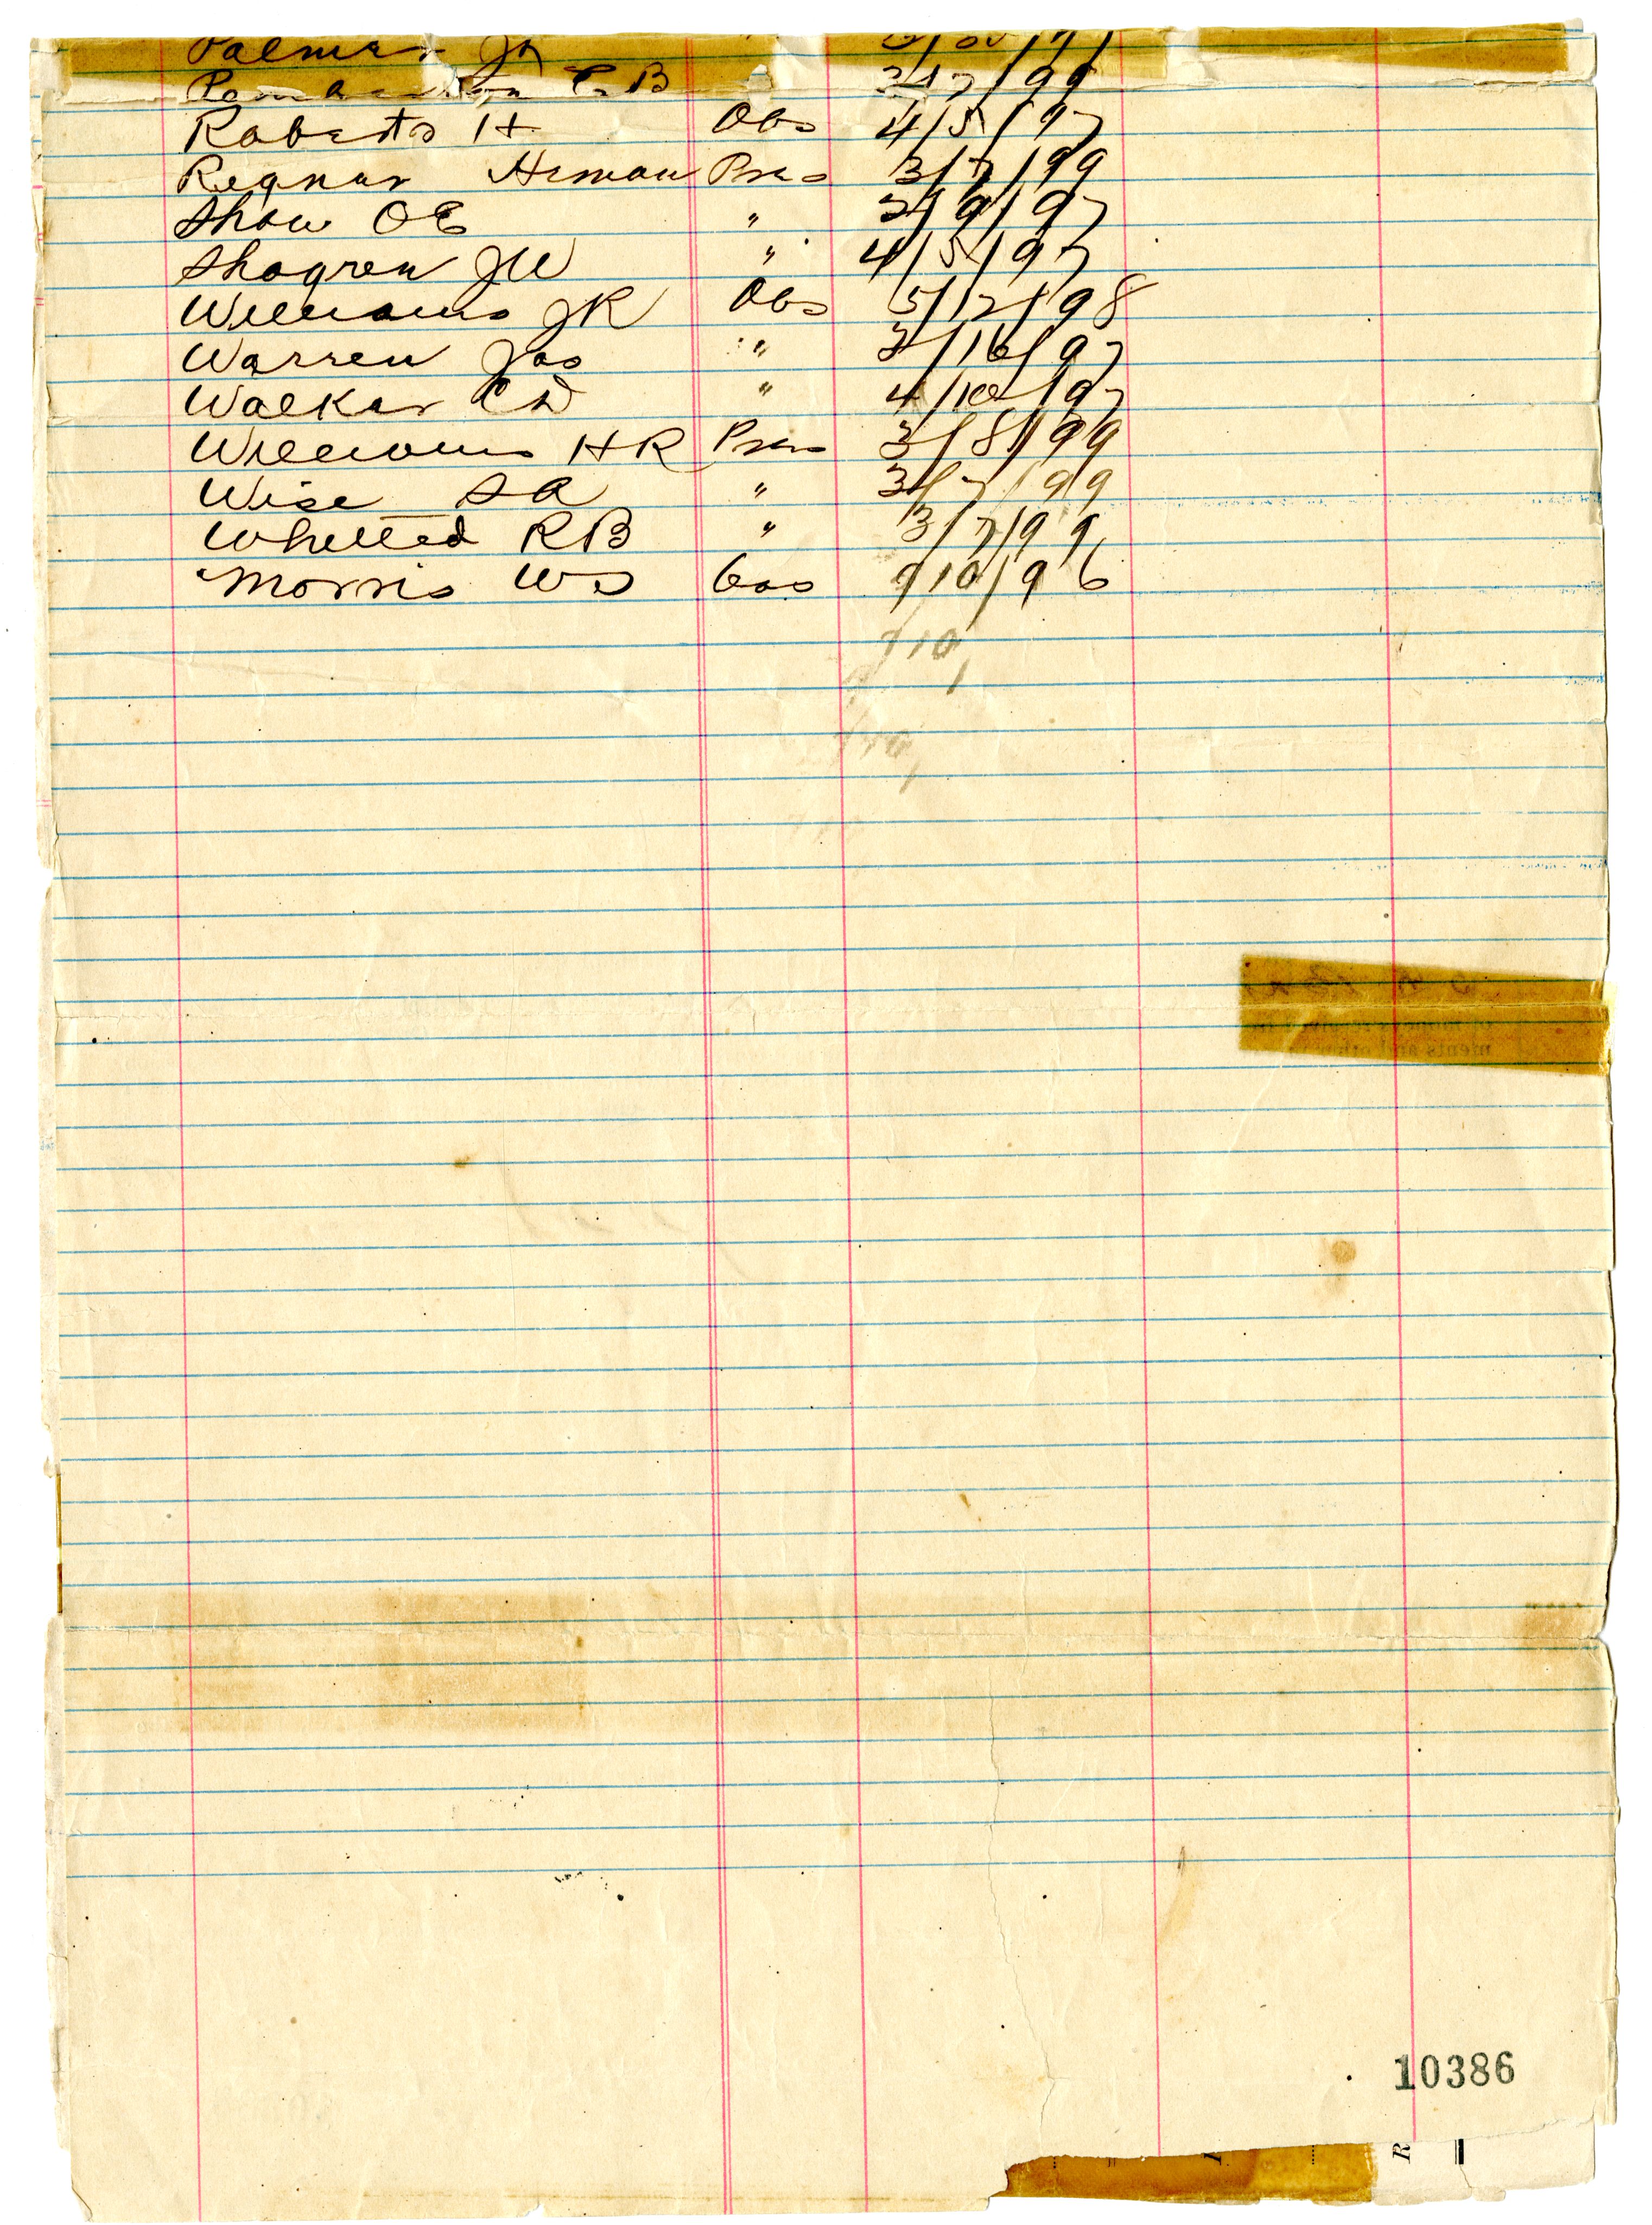 Palmer
C B 3/7/99
Roberts H Obs 4/5/97
Regnar Heman Pres 3/7/99
Shaw OE " 3/9/97
Shogren JW " 4/5/97
Williams JR Obs 5/12/98
Warren Jas " 3/16/97
Walker CW " 4/10/97
Williams HR Pres 3/8/99
Wise SA " 3/7/99
Whitted RB " 3/7/99
Morris WS 9/10/96
10386
R